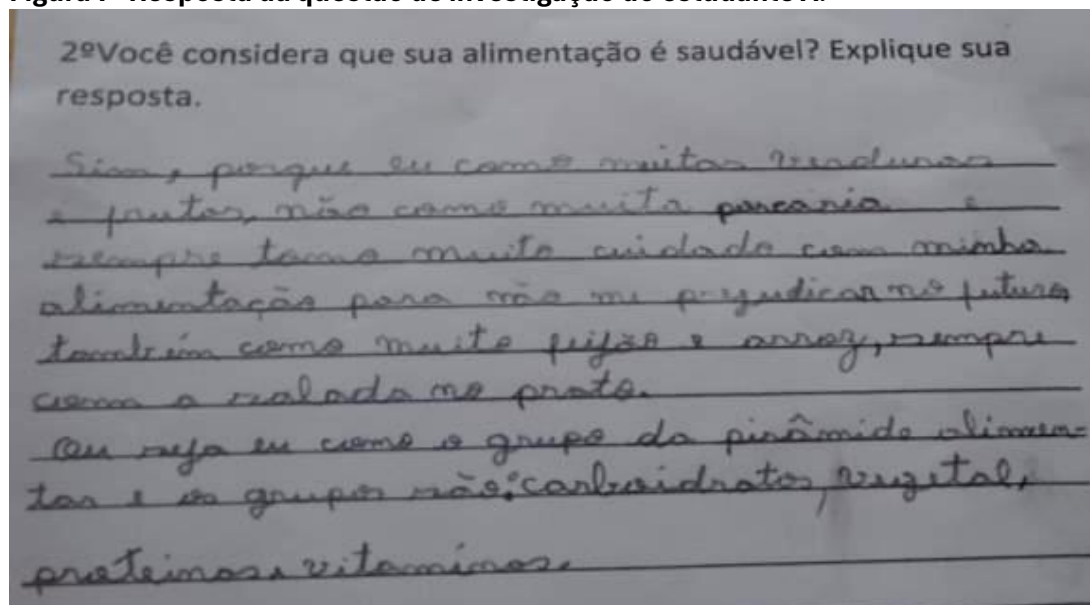 2ºVocê considera que sua alimentação é saudável? Explique sua
resposta.
Sim, porque eu como muitas verduras
e frutas, não como muita porcaria e
sempre tomo muito cuidado com minha
alimentação para não me prejudicar no futuro
também como muito feijão e arroz, sempre
com a salada no prato.
Ou seja eu como o grupo da pirâmide alimen-
tar e os grupos são: carboidratos, vegetal,
proteinas e vitaminas.